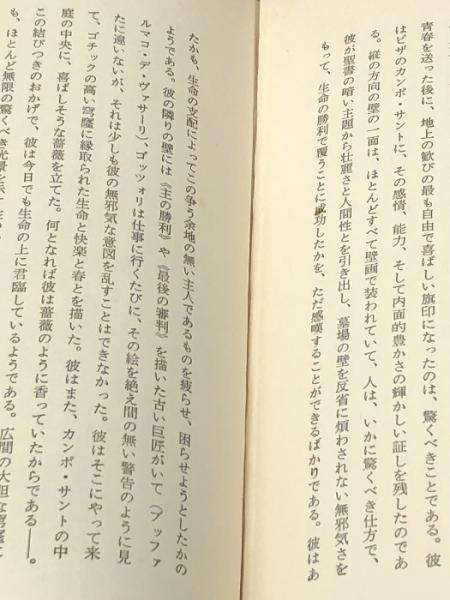 青春を送った後に、地上の歓びの最も自由で喜ばしい旗印になったのは、驚くべきことである。彼
はピザのカンポ・サントに、その感情、能力、そして内面的豊かさの輝かしい証しを残したのであ
る。縦の方向の壁の一面は、ほとんどすべて壁画で装われていて、人は、いかに驚くべき仕方で、
彼が聖書の暗い主題から壮麗さと人間性とを引き出し、墓場の壁を反省に煩わされない無邪気さを
もって、生命の勝利で覆うことに成功したかを、ただ感嘆することができるばかりである。彼はあ
たかも、生命の支配によってこの争う余地の無い主人であるものを疲らせ、困らせようとしたかの
ようである。彼の隣りの壁には《主の勝利》や《最後の審判》を描いた古い巨匠がいて（ブッファ
ルマコ・デ・ヴァサーリ）、ゴッツォリは仕事に行くたびに、その絵を絶え間の無い警告のように見
たに違いないが、それは少しも彼の無邪気な意図を乱すことはできなかった。彼はそこにやって来
て、ゴチックの高い穹窿に縁取られた生命と快楽と春とを描いた。彼はまた、カンポ・サントの中
庭の中央に、喜ばしそうな薔薇を立てた。何となれば彼は薔薇のように香っていたからである――。
この結びつきのおかげで、彼は今日でも生命の上に君臨しているようである。広間の大胆な穹窿に
も、ほとんど無限の驚くべき光景を